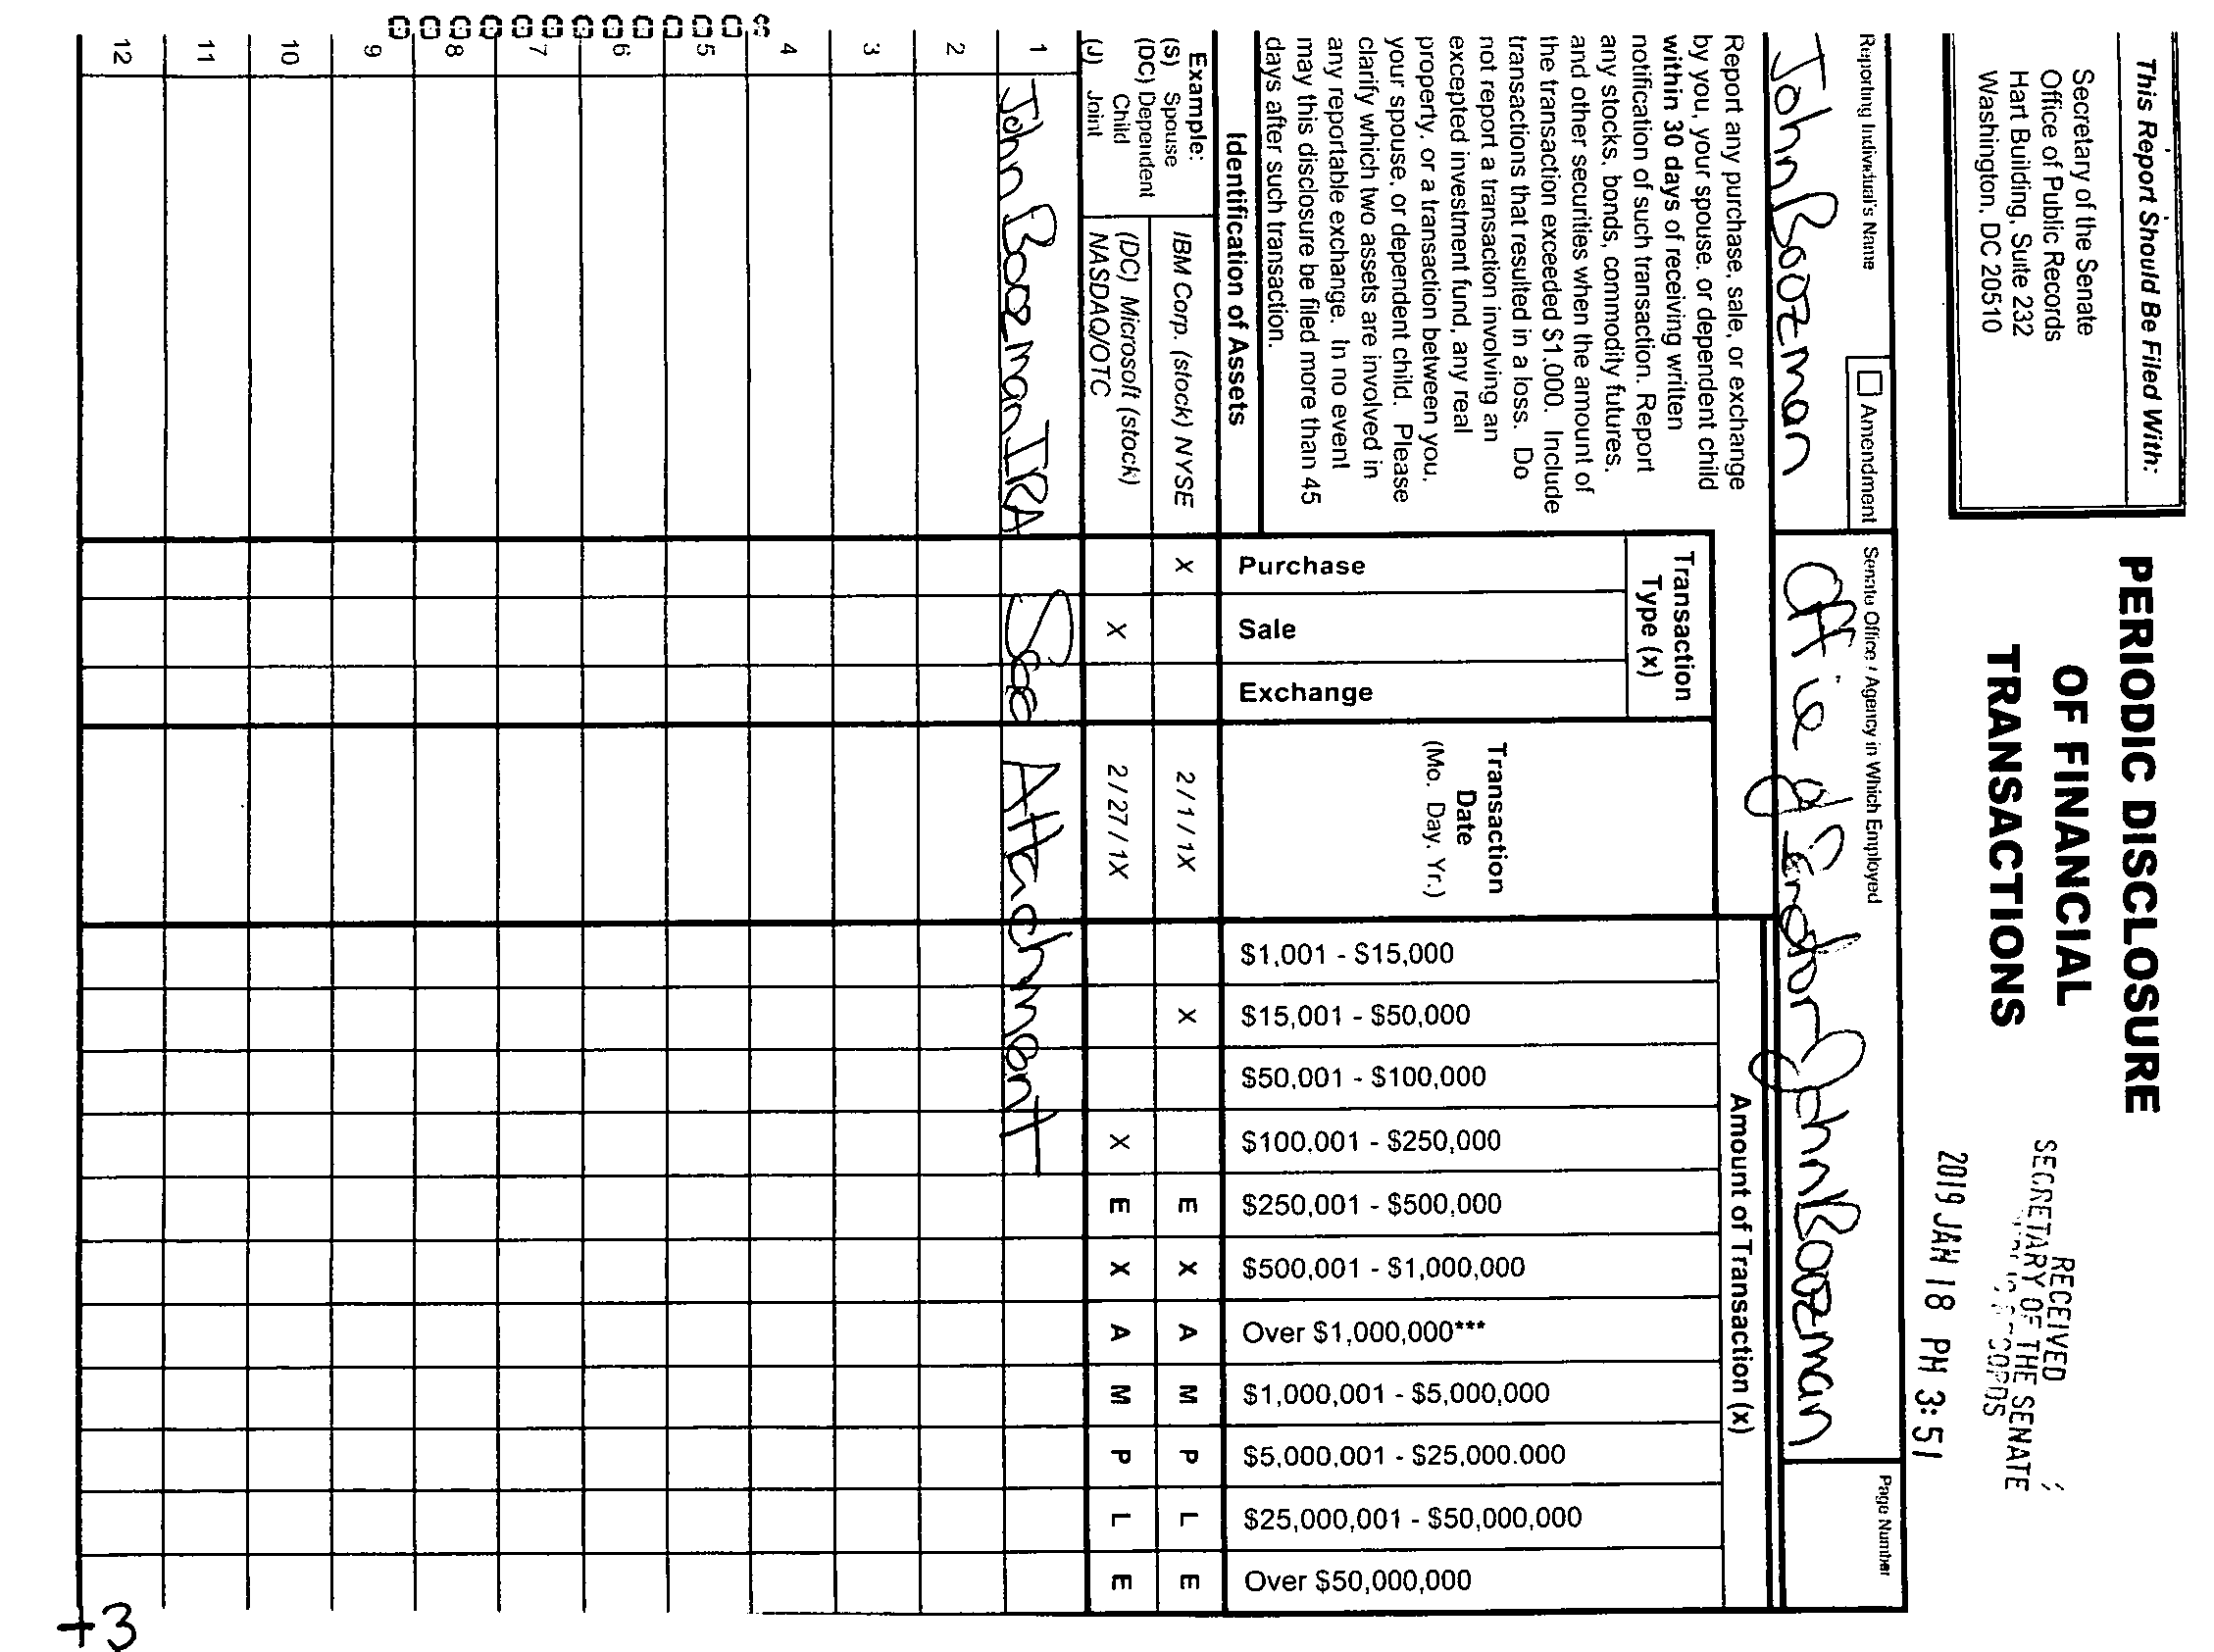 This Report Should Be Filed With:
Secretary of the Senate
Office of Public Records
Hart Building, Suite 232
Washington, DC 20510
PERIODIC DISCLOSURE
OF FINANCIAL
TRANSACTIONS
RECEIVED
SECRETARY OF THE SENATE
2019 JAN 18 PM 3:51
Reporting Individual's Name
Amendment
Senate Office / Agency in Which Employed
Page Number
John Boozman
Office of Senator John Boozman
Report any purchase, sale, or exchange
by you, your spouse, or dependent child
within 30 days of receiving written
notification of such transaction. Report
any stocks, bonds, commodity futures,
and other securities when the amount of
the transaction exceeded $1,000. Include
transactions that resulted in a loss. Do
not report a transaction involving an
excepted investment fund, any real
property, or a transaction between you,
your spouse, or dependent child. Please
clarify which two assets are involved in
any reportable exchange. In no event
may this disclosure be filed more than 45
days after such transaction.
Identification of Assets
Transaction
Type (x)
Purchase
Sale
Exchange
Transaction
Date
(Mo. Day. Yr.)
Amount of Transaction (x)
$1,001 - $15,000
$15,001 - $50,000
$50,001 - $100,000
$100,001 - $250,000
$250,001 - $500,000
$500,001 - $1,000,000
Over $1,000,000***
$1,000,001 - $5,000,000
$5,000,001 - $25,000.000
$25,000,001 - $50,000,000
Over $50,000,000
Example:
(S) Spouse
(DC) Dependent
Child
(J) Joint
IBM Corp. (stock) NYSE X 2/1/1X X E X A M P L E
(DC) Microsoft (stock)
NASDAQ/OTC X 2/27/1X X E X A M P L E
1 John Boozman IRA See Attachment
2
3
4
5
6
7
8
9
10
11
12
+3